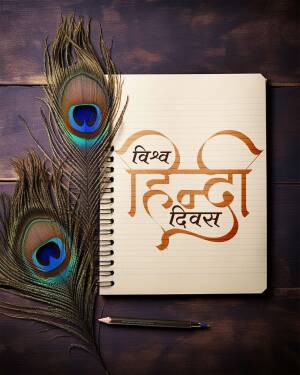 विश्व
हिन्दी
दिवस